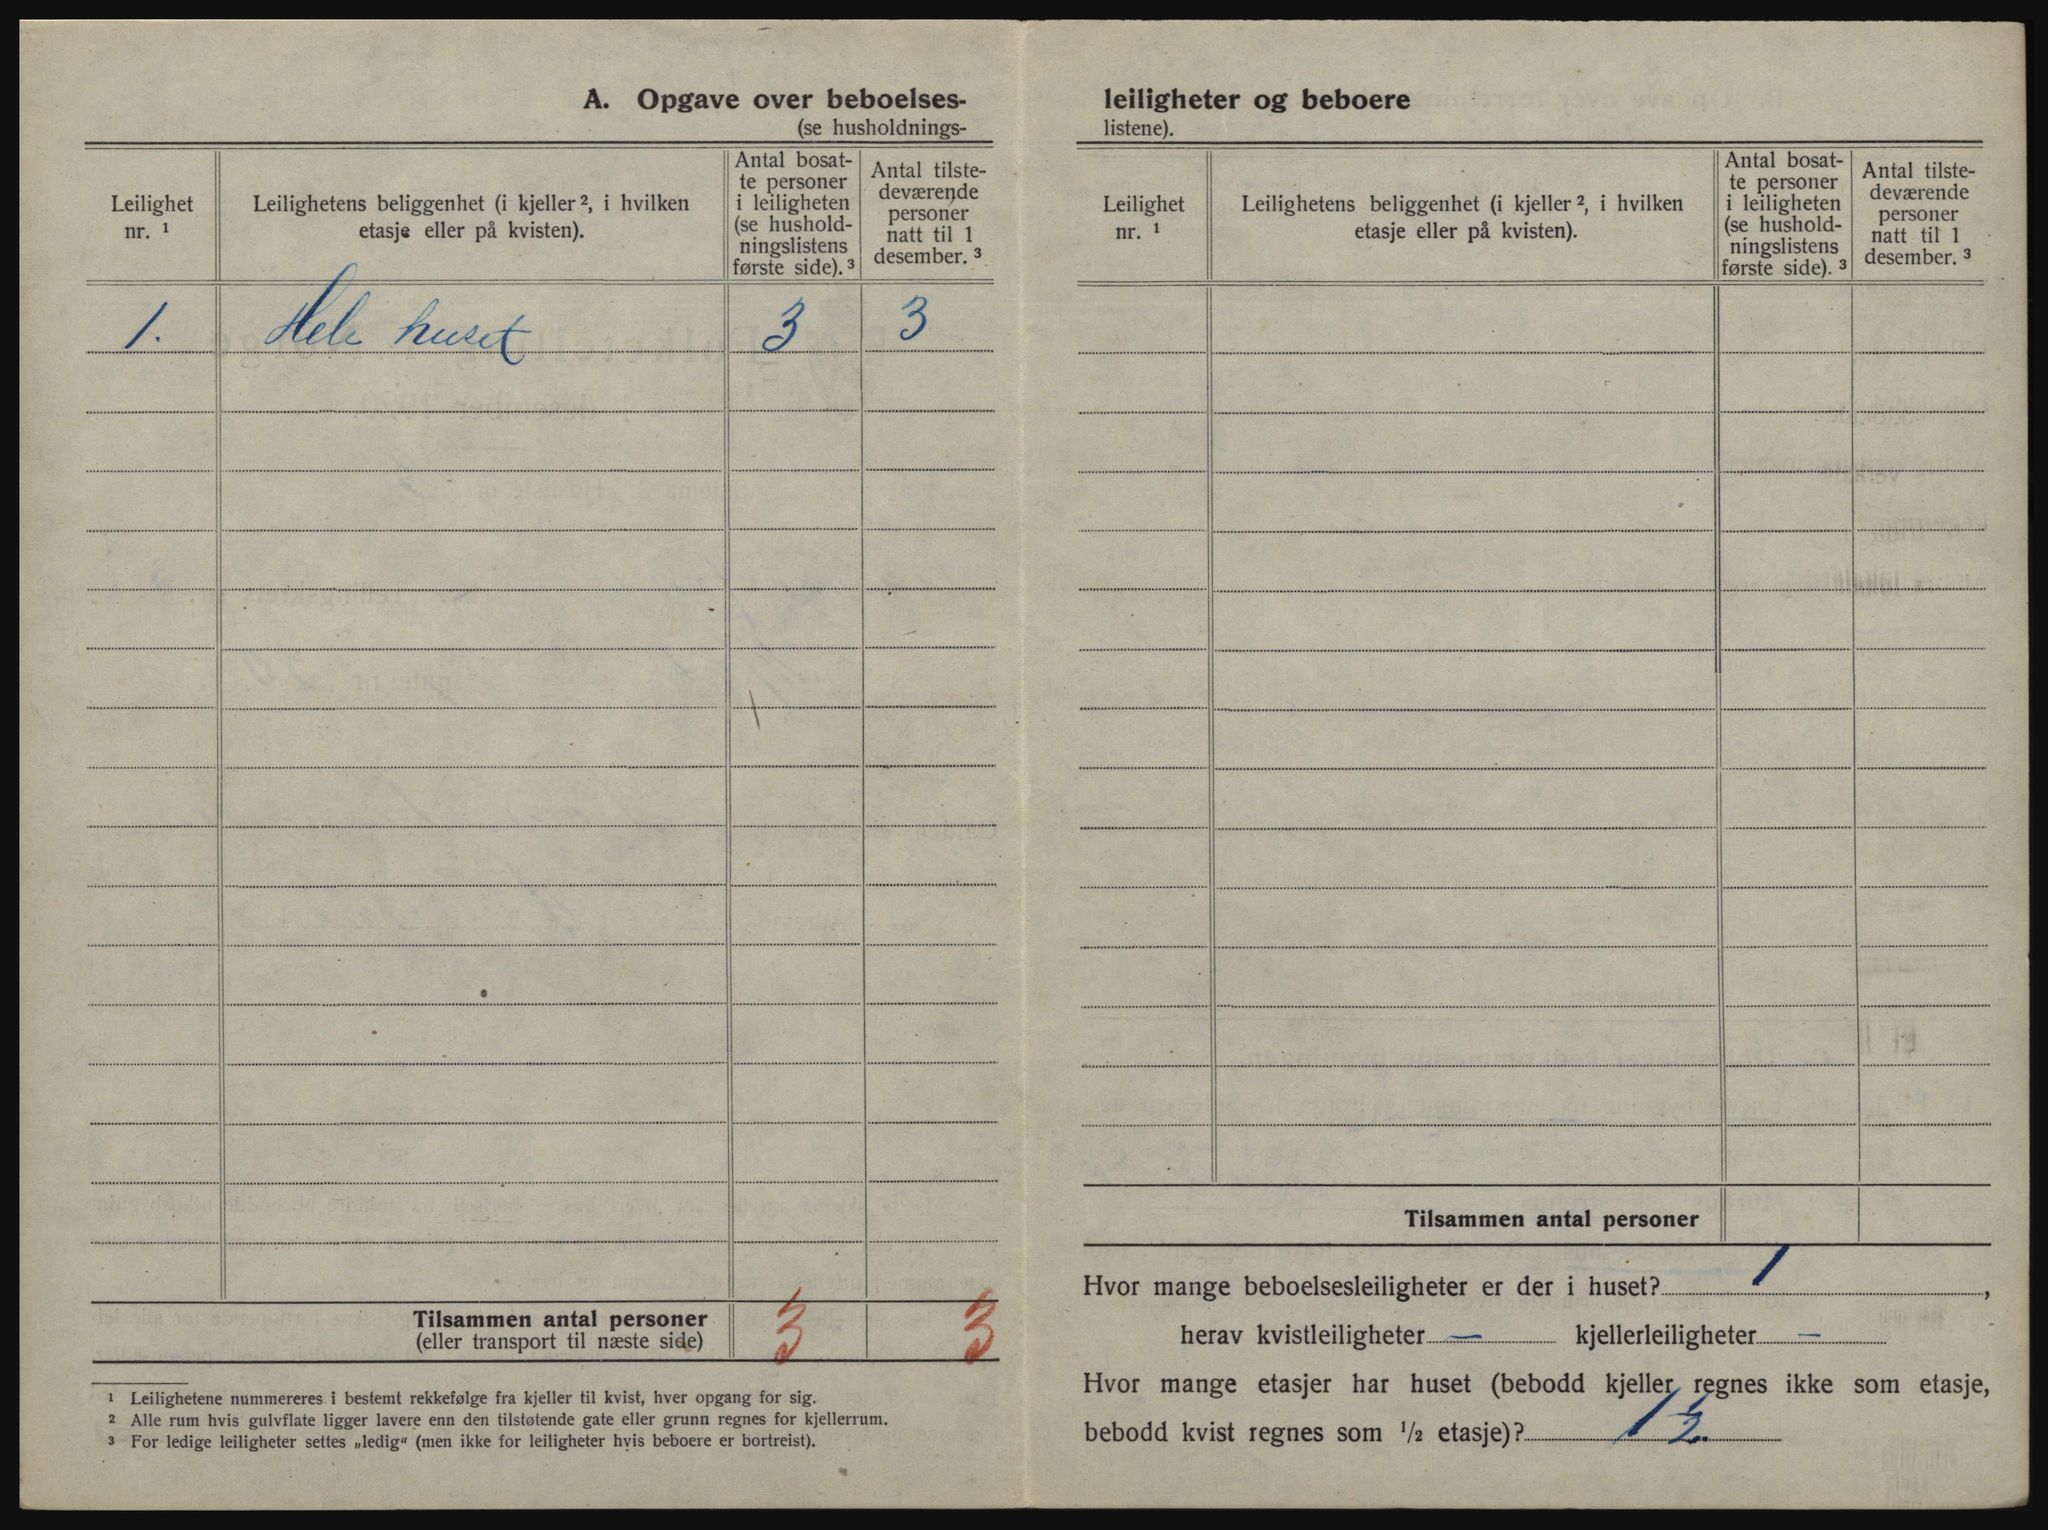 A. Opgave over beboelses-
(se husholdnings-
Leilighet
nr. ¹
Leilighetens beliggenhet (i kjeller ², i hvilken
etasje eller på kvisten).
Antal bosat-
te personer
i leiligheten
(se hushold-
ningslistens
første side). ³
Antal tilste-
deværende
personer
natt til 1
desember. ³
1. Hele huset 3 3
Tilsammen antal personer 3 3
(eller transport til næste side)
¹ Leilighetene nummereres i bestemt rekkefølge fra kjeller til kvist, hver opgang for sig.
² Alle rum hvis gulvflate ligger lavere enn den tilstøtende gate eller grunn regnes for kjellerrum.
³ For ledige leiligheter settes „ledig“ (men ikke for leiligheter hvis beboere er bortreist).
leiligheter og beboere
listene).
Leilighet
nr. ¹
Leilighetens beliggenhet (i kjeller ², i hvilken
etasje eller på kvisten).
Antal bosat-
te personer
i leiligheten
(se hushold-
ningslistens
første side). ³
Antal tilste-
deværende
personer
natt til 1
desember. ³
Tilsammen antal personer
Hvor mange beboelsesleiligheter er der i huset? 1,
herav kvistleiligheter — kjellerleiligheter —
Hvor mange etasjer har huset (bebodd kjeller regnes ikke som etasje,
bebodd kvist regnes som ½ etasje)? 1 ½